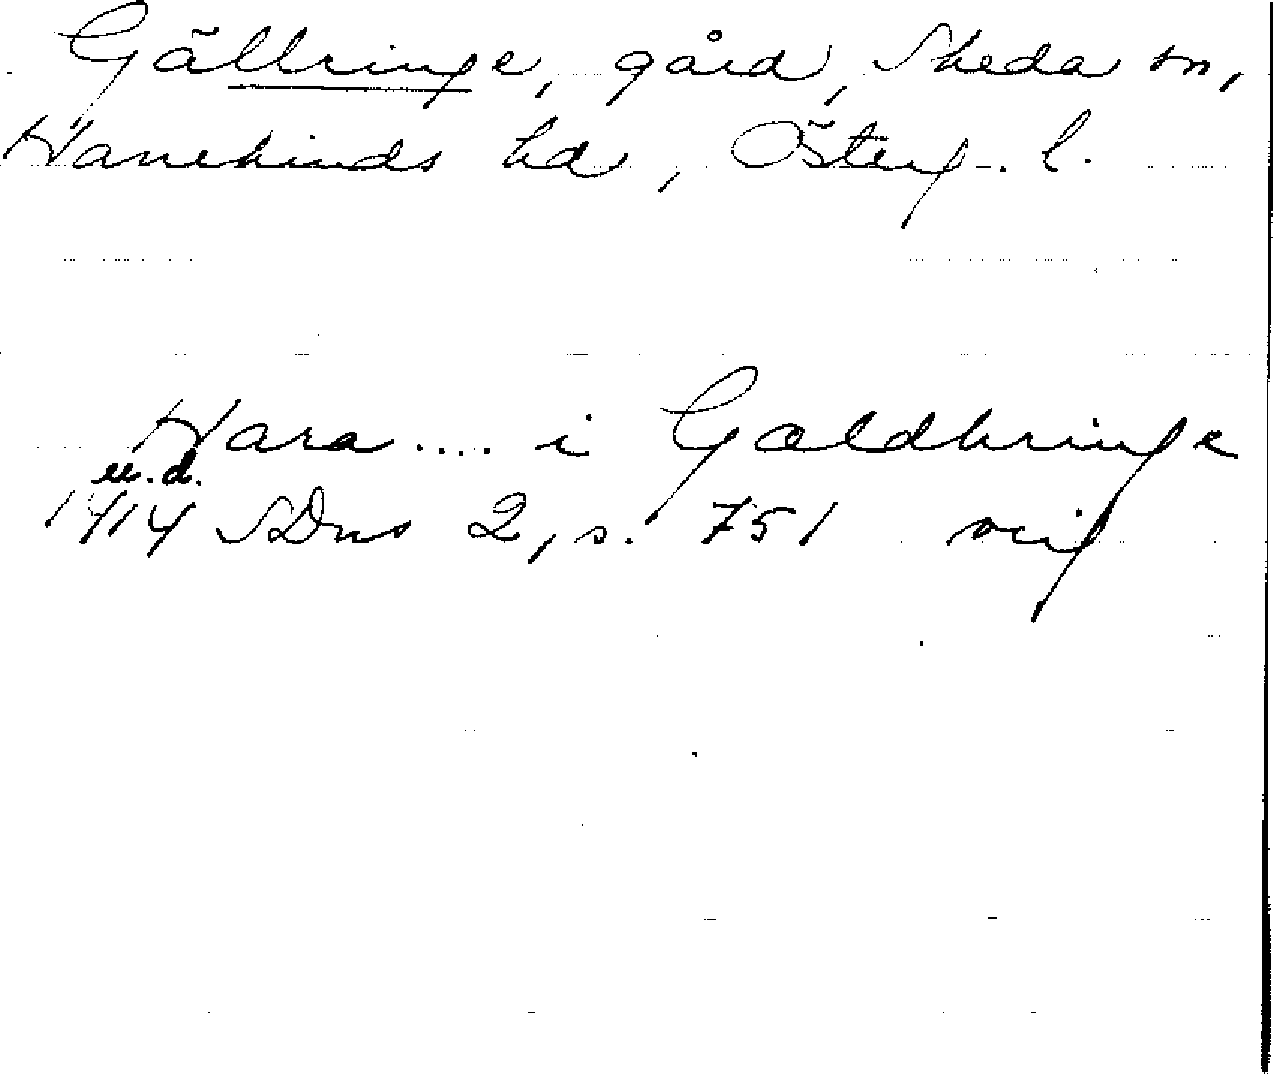 Gällringe, gård, Skeda sn,
Hanekinds hd, Österg. l.
Hara .... i Gældkringe
u.d.
1414 SDns 2, s. 751 orig